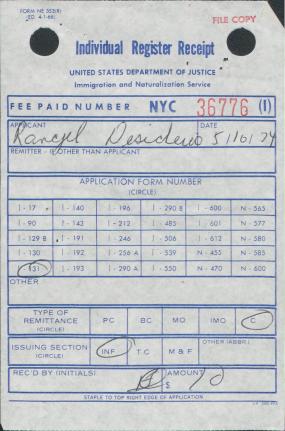 FORM NE 352(R)
(ED. 4-1-68)
FILE COPY
Individual Register Receipt
UNITED STATES DEPARTMENT OF JUSTICE
Immigration and Naturalization Service
FEE PAID NUMBER NYC 36776 (1)
APPLICANT DATE
Rangel Desiderio 5/10/74
REMITTER - IF OTHER THAN APPLICANT
APPLICATION FORM NUMBER
(CIRCLE)
I - 17 I - 140 I - 196 I - 290 B I - 600 N - 565
I - 90 I - 143 I - 212 I - 485 I - 601 N - 577
I - 129 B I - 191 I - 246 I - 506 I - 612 N - 580
I - 130 I - 192 I - 256 A I - 539 N - 455 N - 585
I - 131 I - 193 I - 290 A I - 550 N - 470 N - 600
OTHER
TYPE OF REMITTANCE (CIRCLE) PC BC MO IMO C
ISSUING SECTION (CIRCLE) INF T.C M & F OTHER (ABBR.)
REC'D BY (INITIALS) AMOUNT
$ 10
STAPLE TO TOP RIGHT EDGE OF APPLICATION